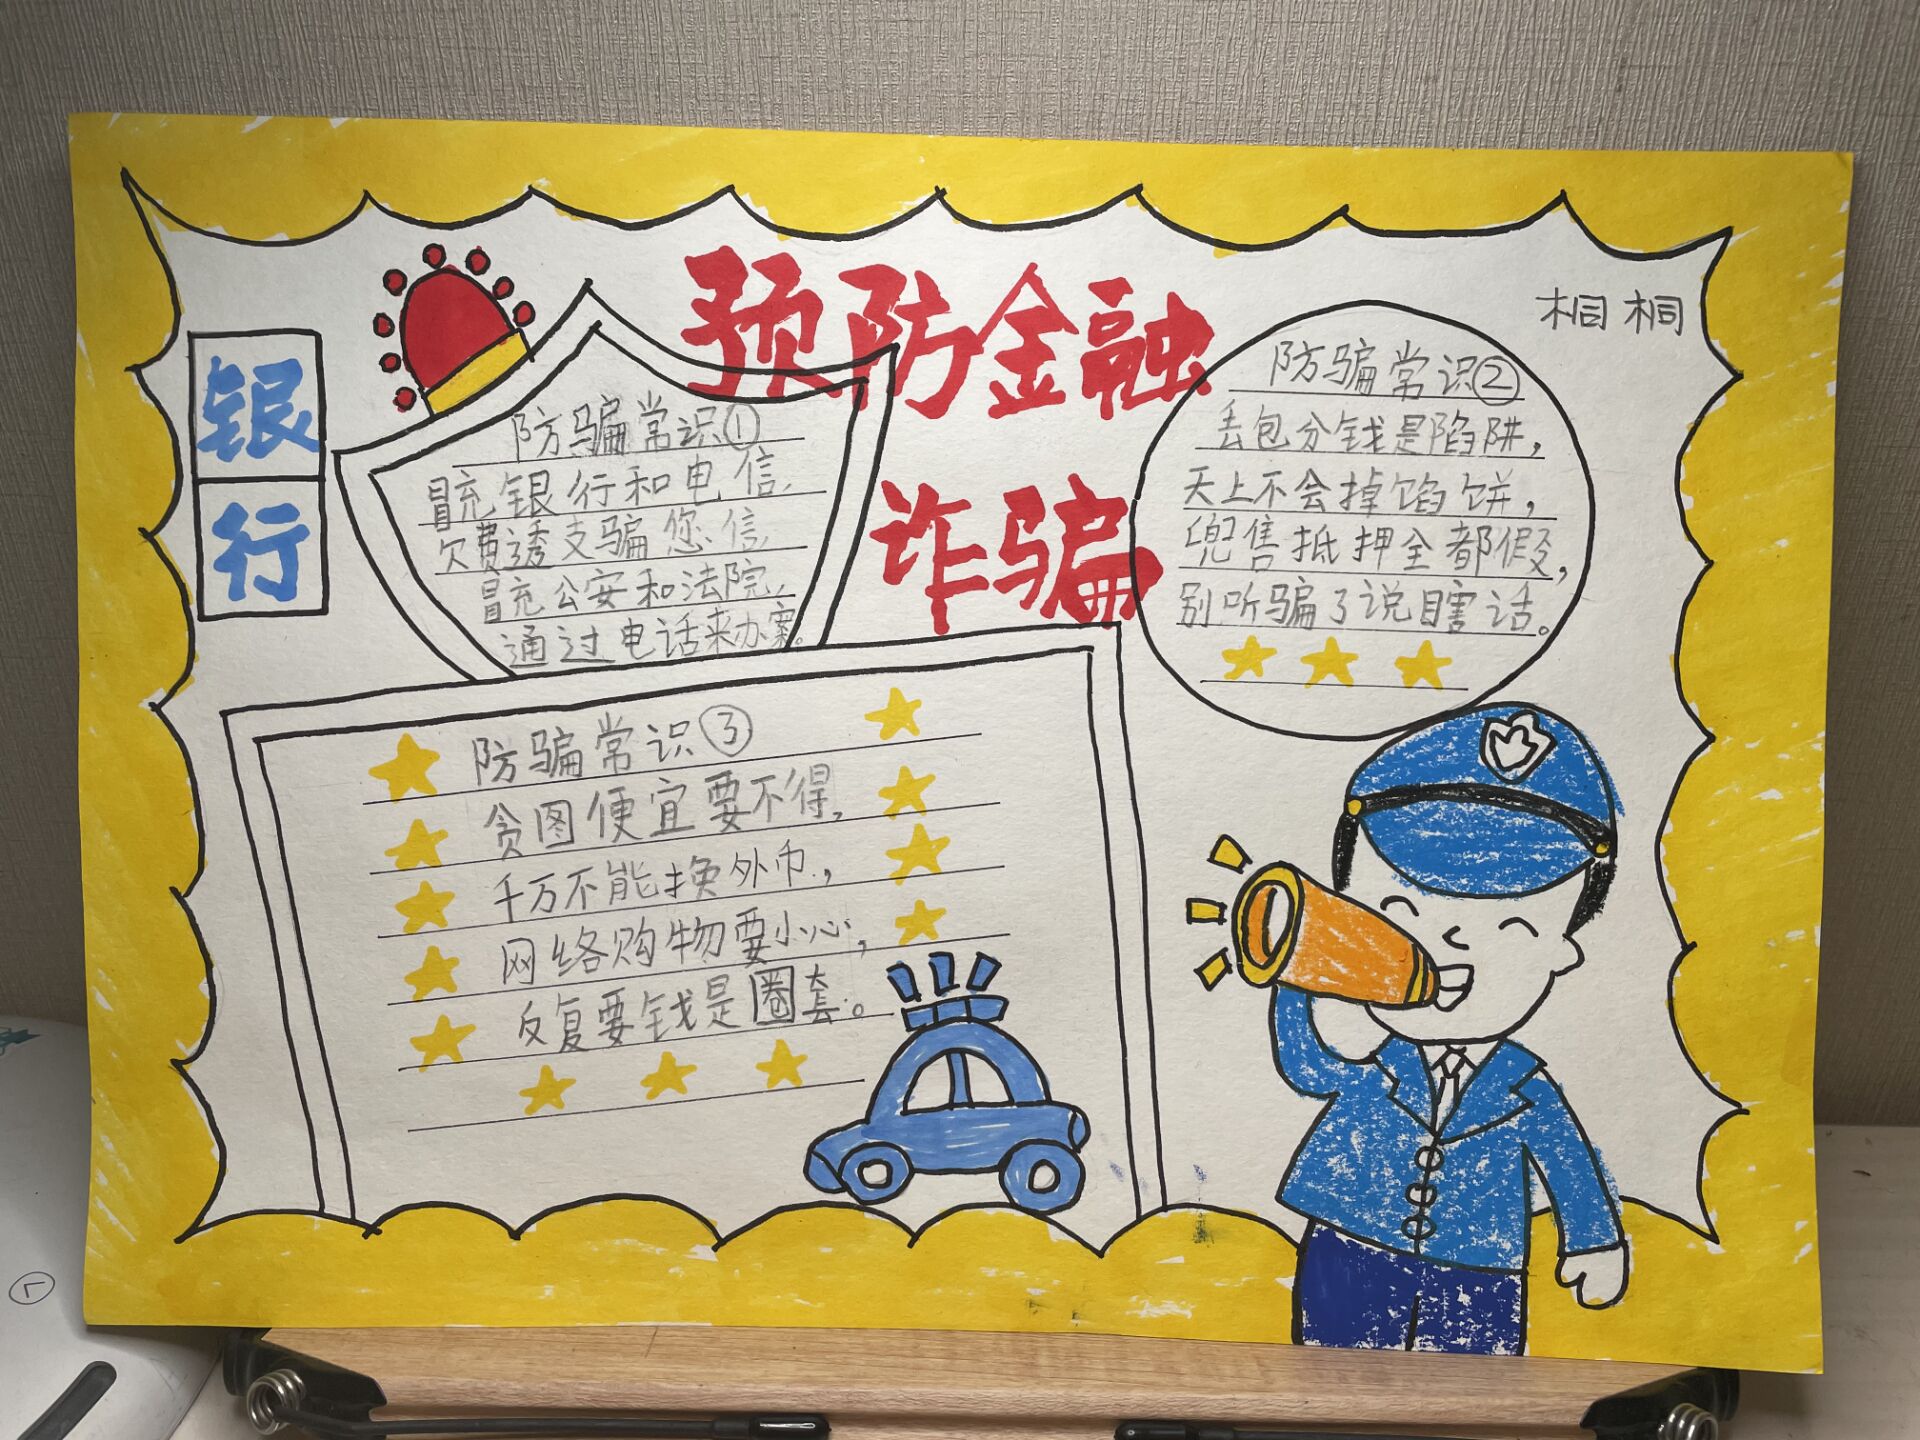 预防金融
诈骗
桐桐
银
行
防骗常识①
冒充银行和电信,
欠费透支骗您信,
冒充公安和法院,
通过电话来办案。
防骗常识②
丢包分钱是陷阱,
天上不会掉馅饼,
兜售抵押全都假,
别听骗子说瞎话。
防骗常识③
贪图便宜要不得,
千万不能换外币,
网络购物要小心,
反复要钱是圈套。